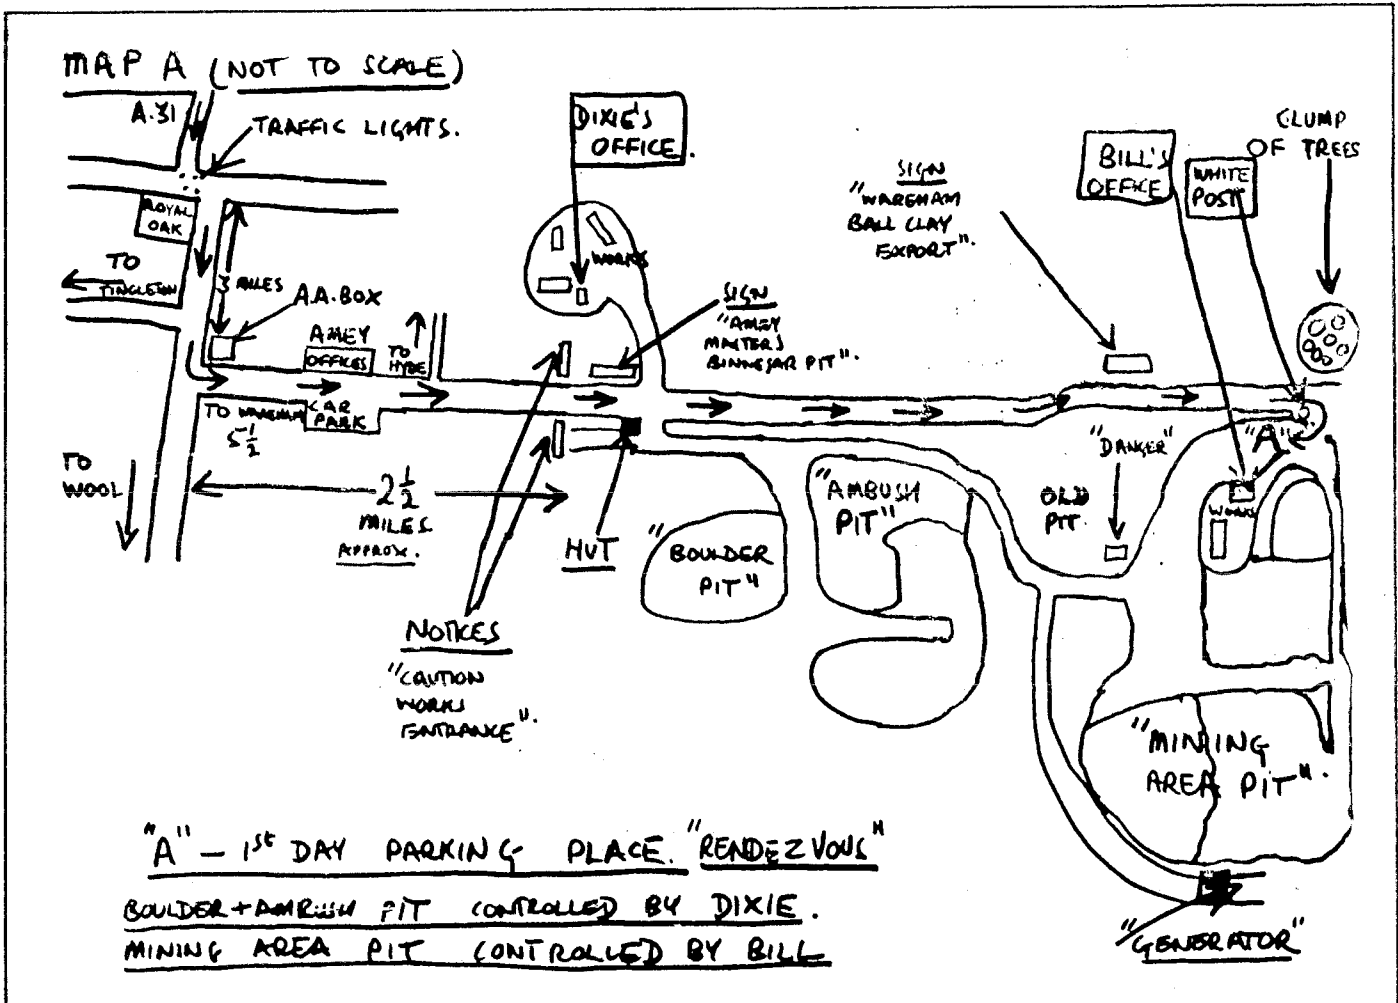 MAP A (NOT TO SCALE)
A.31
TRAFFIC LIGHTS.
ROYAL
OAK
TO
TINCLETON
3 MILES
A.A.BOX
AMEY
OFFICES
TO
HYDE
TO WAREHAM
5 1/2
CAR
PARK
TO
WOOL
2 1/2
MILES
APPROX.
DIXIE'S
OFFICE.
WORKS
SIGN
"AMEY
MASTERS
BINNEGAR PIT".
HUT
NOTICES
"CAUTION
WORKS
ENTRANCE".
"BOULDER
PIT"
"AMBUSH
PIT"
SIGN
"WAREHAM
BALL CLAY
EXPORT".
"DANGER"
OLD
PIT.
BILL'S
OFFICE
WHITE
POST
CLUMP
OF TREES
"A"
WORKS
"MINING
AREA PIT".
"GENERATOR"
"A" – 1st DAY PARKING PLACE. "RENDEZVOUS"
BOULDER + AMBUSH PIT CONTROLLED BY DIXIE.
MINING AREA PIT CONTROLLED BY BILL